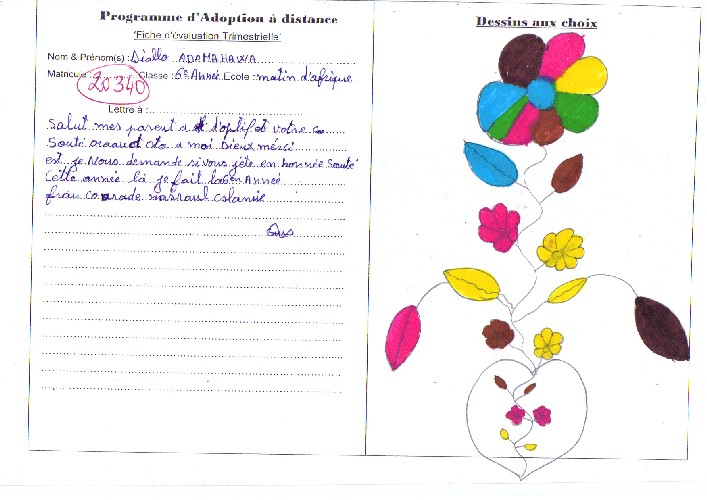 Programme d'Adoption à distance
'Fiche d'évaluation Trimestrielle'
Nom & Prénom(s) : Diallo ADAMA HAWA
Matricule : 20340 Classe : 6e Année Ecole : matin d'afrique
Lettre à :
Salut mes parent a d'optif et votre
Santé a moi Dieux merci
est je Nous demande si vous jéte en bonnée Santé
Cette année là je fait Année
Dessins aux choix